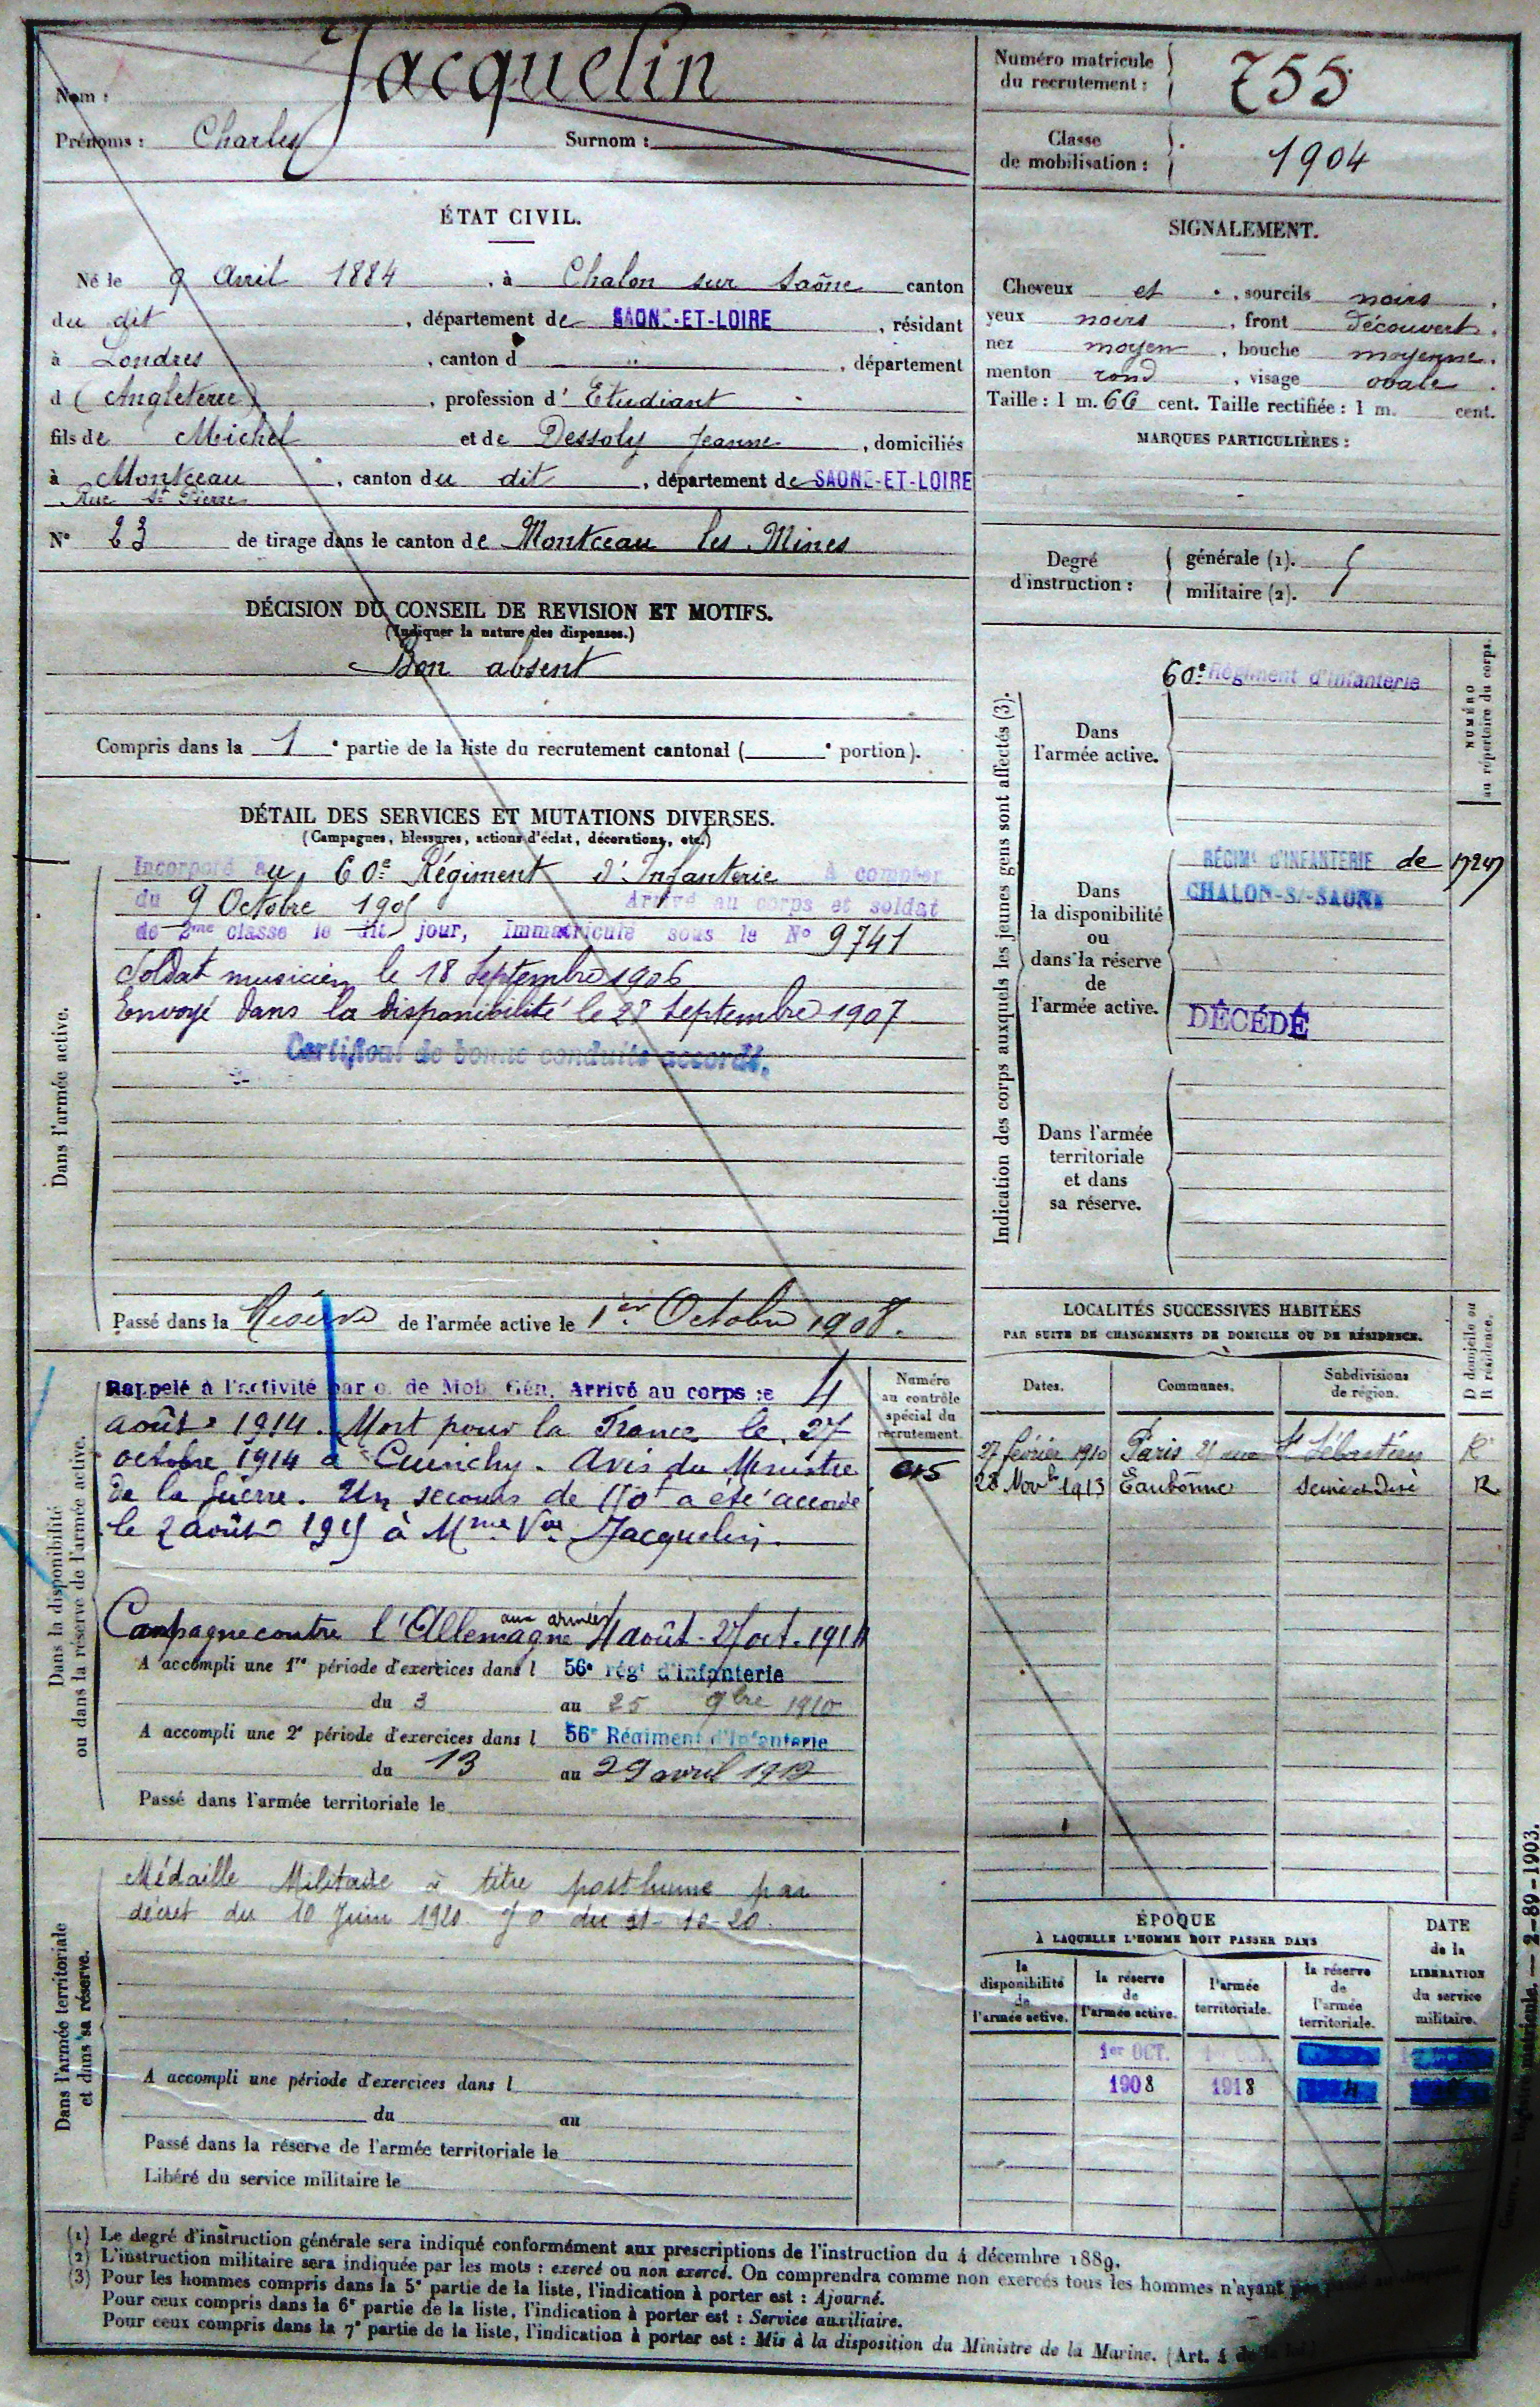 Nom : Jacquelin
Prénoms : Charles Surnom :
Numéro matricule
du recrutement : 755
Classe
de mobilisation : 1904
ÉTAT CIVIL.
Né le 9 Avril 1884, à Chalon sur Saône canton
du dit, département de SAONE-ET-LOIRE, résidant
à Londres, canton d " , département
d (Angleterre), profession d' Etudiant
fils de Michel et de Dessoly Jeanne, domiciliés
à Montceau, canton du dit, département de SAONE-ET-LOIRE
Rue St Pierre
N° 23 de tirage dans le canton de Montceau les Mines
SIGNALEMENT.
Cheveux et , sourcils noirs.
yeux noirs, front découvert.
nez moyen, bouche moyenne.
menton rond, visage ovale.
Taille : 1 m. 66 cent. Taille rectifiée : 1 m. cent.
MARQUES PARTICULIÈRES :
Degré
d'instruction :
générale (1).
militaire (2).
DÉCISION DU CONSEIL DE REVISION ET MOTIFS.
(Indiquer la nature des dispenses.)
Bon absent
Compris dans la 1e partie de la liste du recrutement cantonal ( e portion).
DÉTAIL DES SERVICES ET MUTATIONS DIVERSES.
(Campagnes, blessures, actions d'éclat, décorations, etc.)
Dans l'armée active.
Incorporé au 60e Régiment d'Infanterie à compter
du 9 Octobre 1905 Arrivé au corps et soldat
de 2me classe le dit jour, Immatriculé sous le N° 9741
Soldat musicien le 18 Septembre 1906
Envoyé dans la disponibilité le 28 Septembre 1907
Certificat de bonne conduite accordé.
Passé dans la Réserve de l'armée active le 1er Octobre 1908.
Dans la disponibilité
ou dans la réserve de l'armée active.
Rappelé à l'activité par o. de Mob. Gén. Arrivé au corps le 4
août 1914. Mort pour la France le 27
octobre 1914 à Cuinchy. Avis du Ministre
de la Guerre. Un secours de 150f a été accordé
le 2 août 1915 à Mme Vve Jacquelin.
Campagne contre l'Allemagne aux armées 4 août - 27 oct. 1914
A accompli une 1re période d'exercices dans l 56e régt d'infanterie
du 3 au 25 9bre 1910
A accompli une 2e période d'exercices dans l 56e Régiment d'Infanterie
du 13 au 29 avril 1912
Passé dans l'armée territoriale le
Numéro
au contrôle
spécial du
recrutement.
Dans l'armée territoriale
et dans sa réserve.
Médaille Militaire à titre posthume par
décret du 10 Juin 1920. JO du 31-10-20.
A accompli une période d'exercices dans l
du au
Passé dans la réserve de l'armée territoriale le
Libéré du service militaire le
Indication des corps auxquels les jeunes gens sont affectés (3).
NUMÉRO
au répertoire du corps.
Dans
l'armée active.
60e Régiment d'Infanterie
Dans
la disponibilité
ou
dans la réserve
de
l'armée active.
RÉGIMt D'INFANTERIE de
CHALON-S/-SAONE
17247
DÉCÉDÉ
Dans l'armée
territoriale
et dans
sa réserve.
LOCALITÉS SUCCESSIVES HABITÉES
PAR SUITE DE CHANGEMENTS DE DOMICILE OU DE RÉSIDENCE.
D domicile ou
R résidence.
Dates. Communes. Subdivisions
de région.
27 février 1910 Paris 21 rue St Sébastien R
28 Novbre 1913 Eaubonne Seine et Oise R
ÉPOQUE
À LAQUELLE L'HOMME DOIT PASSER DANS
la
disponibilité
de
l'armée active.
la réserve
de
l'armée active.
l'armée
territoriale.
la réserve
de
l'armée
territoriale.
DATE
de la
LIBÉRATION
du service
militaire.
1er OCT. 1er OCT.
1908 1918
(1) Le degré d'instruction générale sera indiqué conformément aux prescriptions de l'instruction du 4 décembre 1889.
(2) L'instruction militaire sera indiquée par les mots : exercé ou non exercé. On comprendra comme non exercés tous les hommes n'ayant
(3) Pour les hommes compris dans la 5e partie de la liste, l'indication à porter est : Ajourné.
Pour ceux compris dans la 6e partie de la liste, l'indication à porter est : Service auxiliaire.
Pour ceux compris dans la 7e partie de la liste, l'indication à porter est : Mis à la disposition du Ministre de la Marine. (Art. 4 de la
matricule. — 2-89-1903.